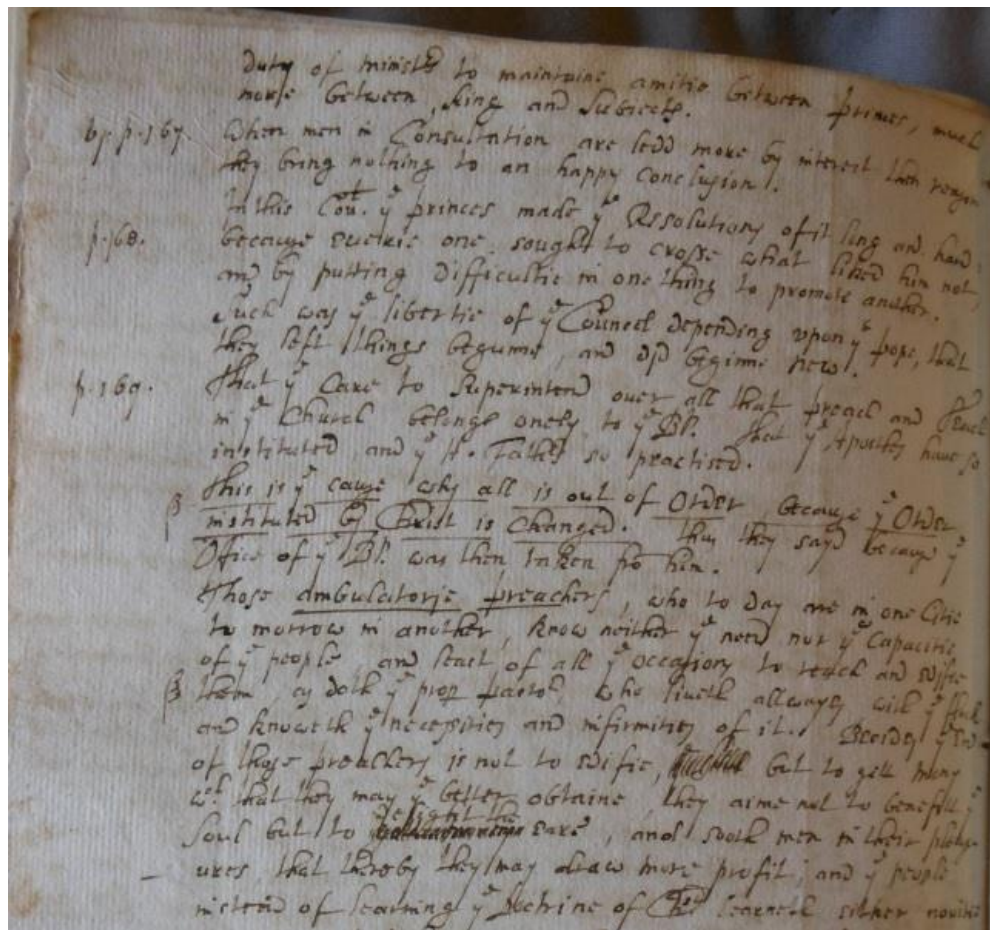 Duty of ministers to maintaine amitie between princes, much
more between King and Subjects.
by. p. 167. When men in Consultation are ledd more by interest then reason
they bring nothing to an happy conclusion.
In this Cou. yᵉ princes made yᵉ Resolutions of it long and hard
p. 168. because everie one sought to crosse what liked him not,
and by putting difficultie in one thing to promote another.
Such was yᵉ libertie of yᵉ Councel depending vpon yᵉ pope, that
they left things begunne, and did beginne new.
p. 169. That yᵉ Care to Superintend over all that preach and Teach
in yᵉ Church belongs onely to yᵉ Bp. That yᵉ Apostles have so
instituted, and yᵉ H. Fathers so practised.
This is yᵉ cause why all is out of Order, because yᵉ Order
instituted by Christ is Changed. thus they sayd because yᵉ
Office of yᵉ Bp. was then taken fro him.
Those ambulatorie preachers, who to day are in one Citie
to morrow in another, know neither yᵉ need nor yᵉ Capacitie
of yᵉ people, and least of all yᵉ occasions to teach and edifie
them, as doth yᵉ prop pastor, who liveth allwayes with yᵉ flock
and knoweth yᵉ necessities and infirmities of it. Besides yᵉ End
of those preachers is not to edifie, but to gett mony
wᶜʰ that they may yᵉ better obtaine, they aime not to benefitt yᵉ
Soul but to delight the eare, and sooth men in their pleas-
ures, that thereby they may draw more profit; and yᵉ people
instead of learning yᵉ Doctrine of Chr. learneth either novitie